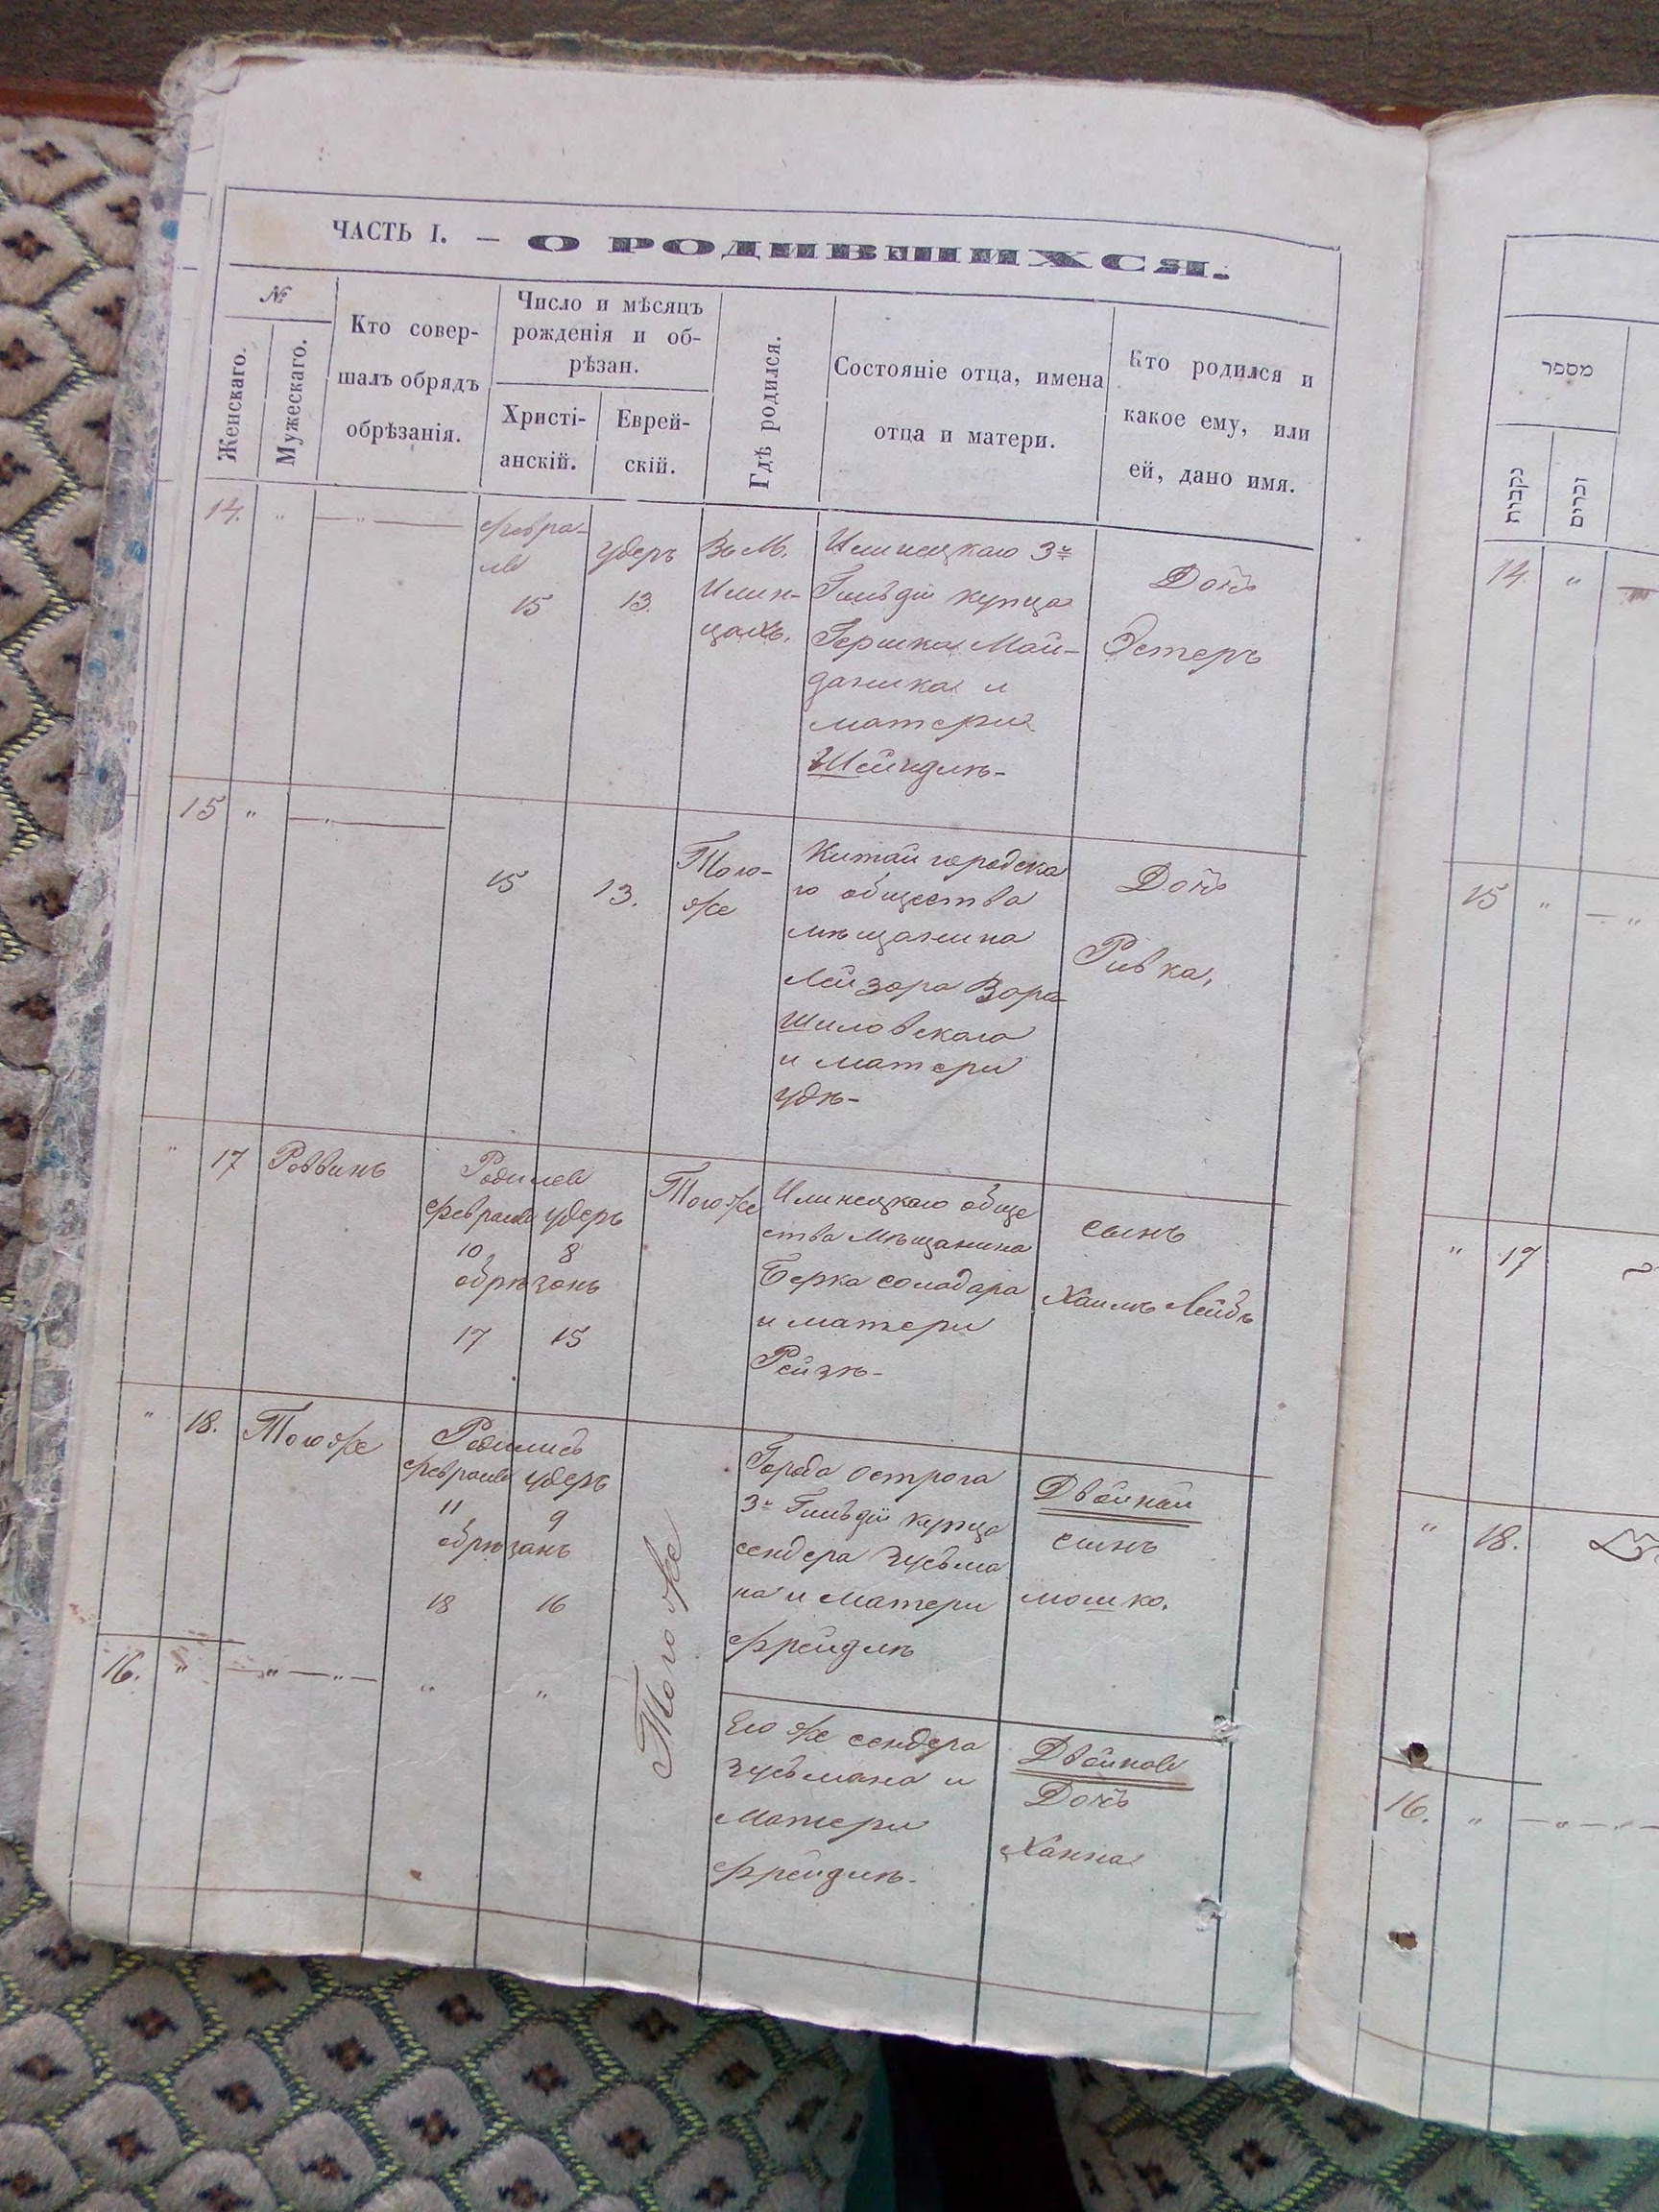 ЧАСТЬ I. — О РОДИВШИХСЯ.
№
Женскаго.
Мужескаго.
Кто совер-
шалъ обрядъ
обрѣзанія.
Число и мѣсяцъ
рожденія и об-
рѣзан.
Христі-
анскій.
Еврей-
скій.
Гдѣ родился.
Состояніе отца, имена
отца и матери.
Кто родился и
какое ему, или
ей, дано имя.
14. " — " —
февра-
ля
15
удеръ
13.
Въ М.
Илин-
цахъ.
Илинецкаго 3й
Гильдіи купца
Гершка Май-
даника и
матери
Шейндлѣ-
Дочь
Эстеръ
15 " — " —
15
13.
Того-
же
Китай городска
го общества
мѣщанина
Лейзора Вора
шиловскаго
и матери
Удѣ-
Дочь
Ривка.
" 17 Раввинъ
Родился
февраля удеръ
10 8
обрѣзанъ
17 15
Того же
Илинецкаго обще
ства мѣщанина
Берка солодара
и матери
Рейзѣ-
сынъ
Хаимъ Лейбъ
" 18. Того же
Родились
февраля удеръ
11 9
обрѣзанъ
18 16
Того же
Города острога
3й Гильдіи купца
сендера Зусьма
на и матери
фрейдлѣ
сынъ
мошко.
16. " — " — " —
" "
Его же сендера
Зусьмана и
Матери
фрейдлѣ-
Дочь
Ханна
מספר
נקבות
זכרים
14. " —
15 " — "
" 17
" 18.
16. " — " — " —